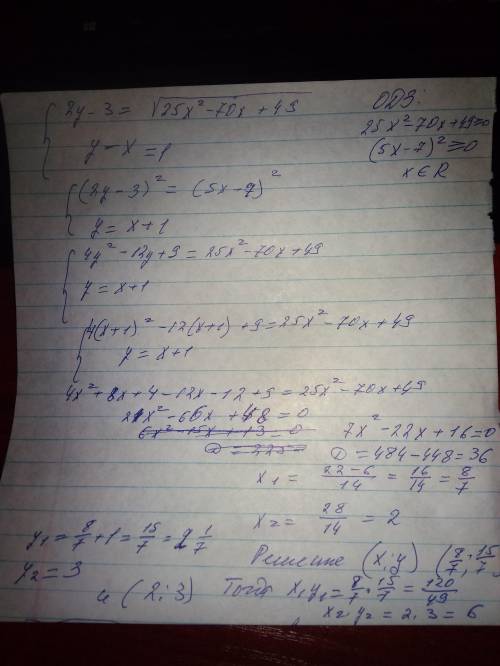 2y-3 = √25x²-70x+49
ODЗ:
y-x=1
25x²-70x+49≥0
(5x-7)²≥0
x∈R
(2y-3)² = (5x-7)²
y = x+1
4y²-12y+9=25x²-70x+49
y = x+1
4(x+1)²-12(x+1)+9=25x²-70x+49
y = x+1
4x²+8x+4-12x-12+9=25x²-70x+49
21x²-66x+48=0
7x²-22x+16=0
6x²-15x+13=0
D=484-448=36
x₁ = 22-6/14 = 16/14 = 8/7
x₂ = 28/14 = 2
y₁ = 8/7+1 = 15/7 = 2 1/7
Решение (x;y) (8/7; 15/7)
y₂=3
и (2;3)
Тогда x₁y₁ = 8/7·15/7 = 120/49
x₂y₂ = 2·3 = 6